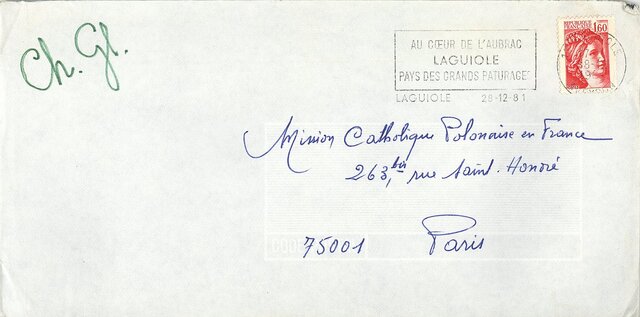 Ch. Gl.
AU CŒUR DE L'AUBRAC
LAGUIOLE
PAYS DES GRANDS PATURAGES
LAGUIOLE 28-12-81
REPUBLIQUE
FRANCAISE
1,60
Mission Catholique Polonaise en France
263, bis rue Saint-Honoré
75001 Paris